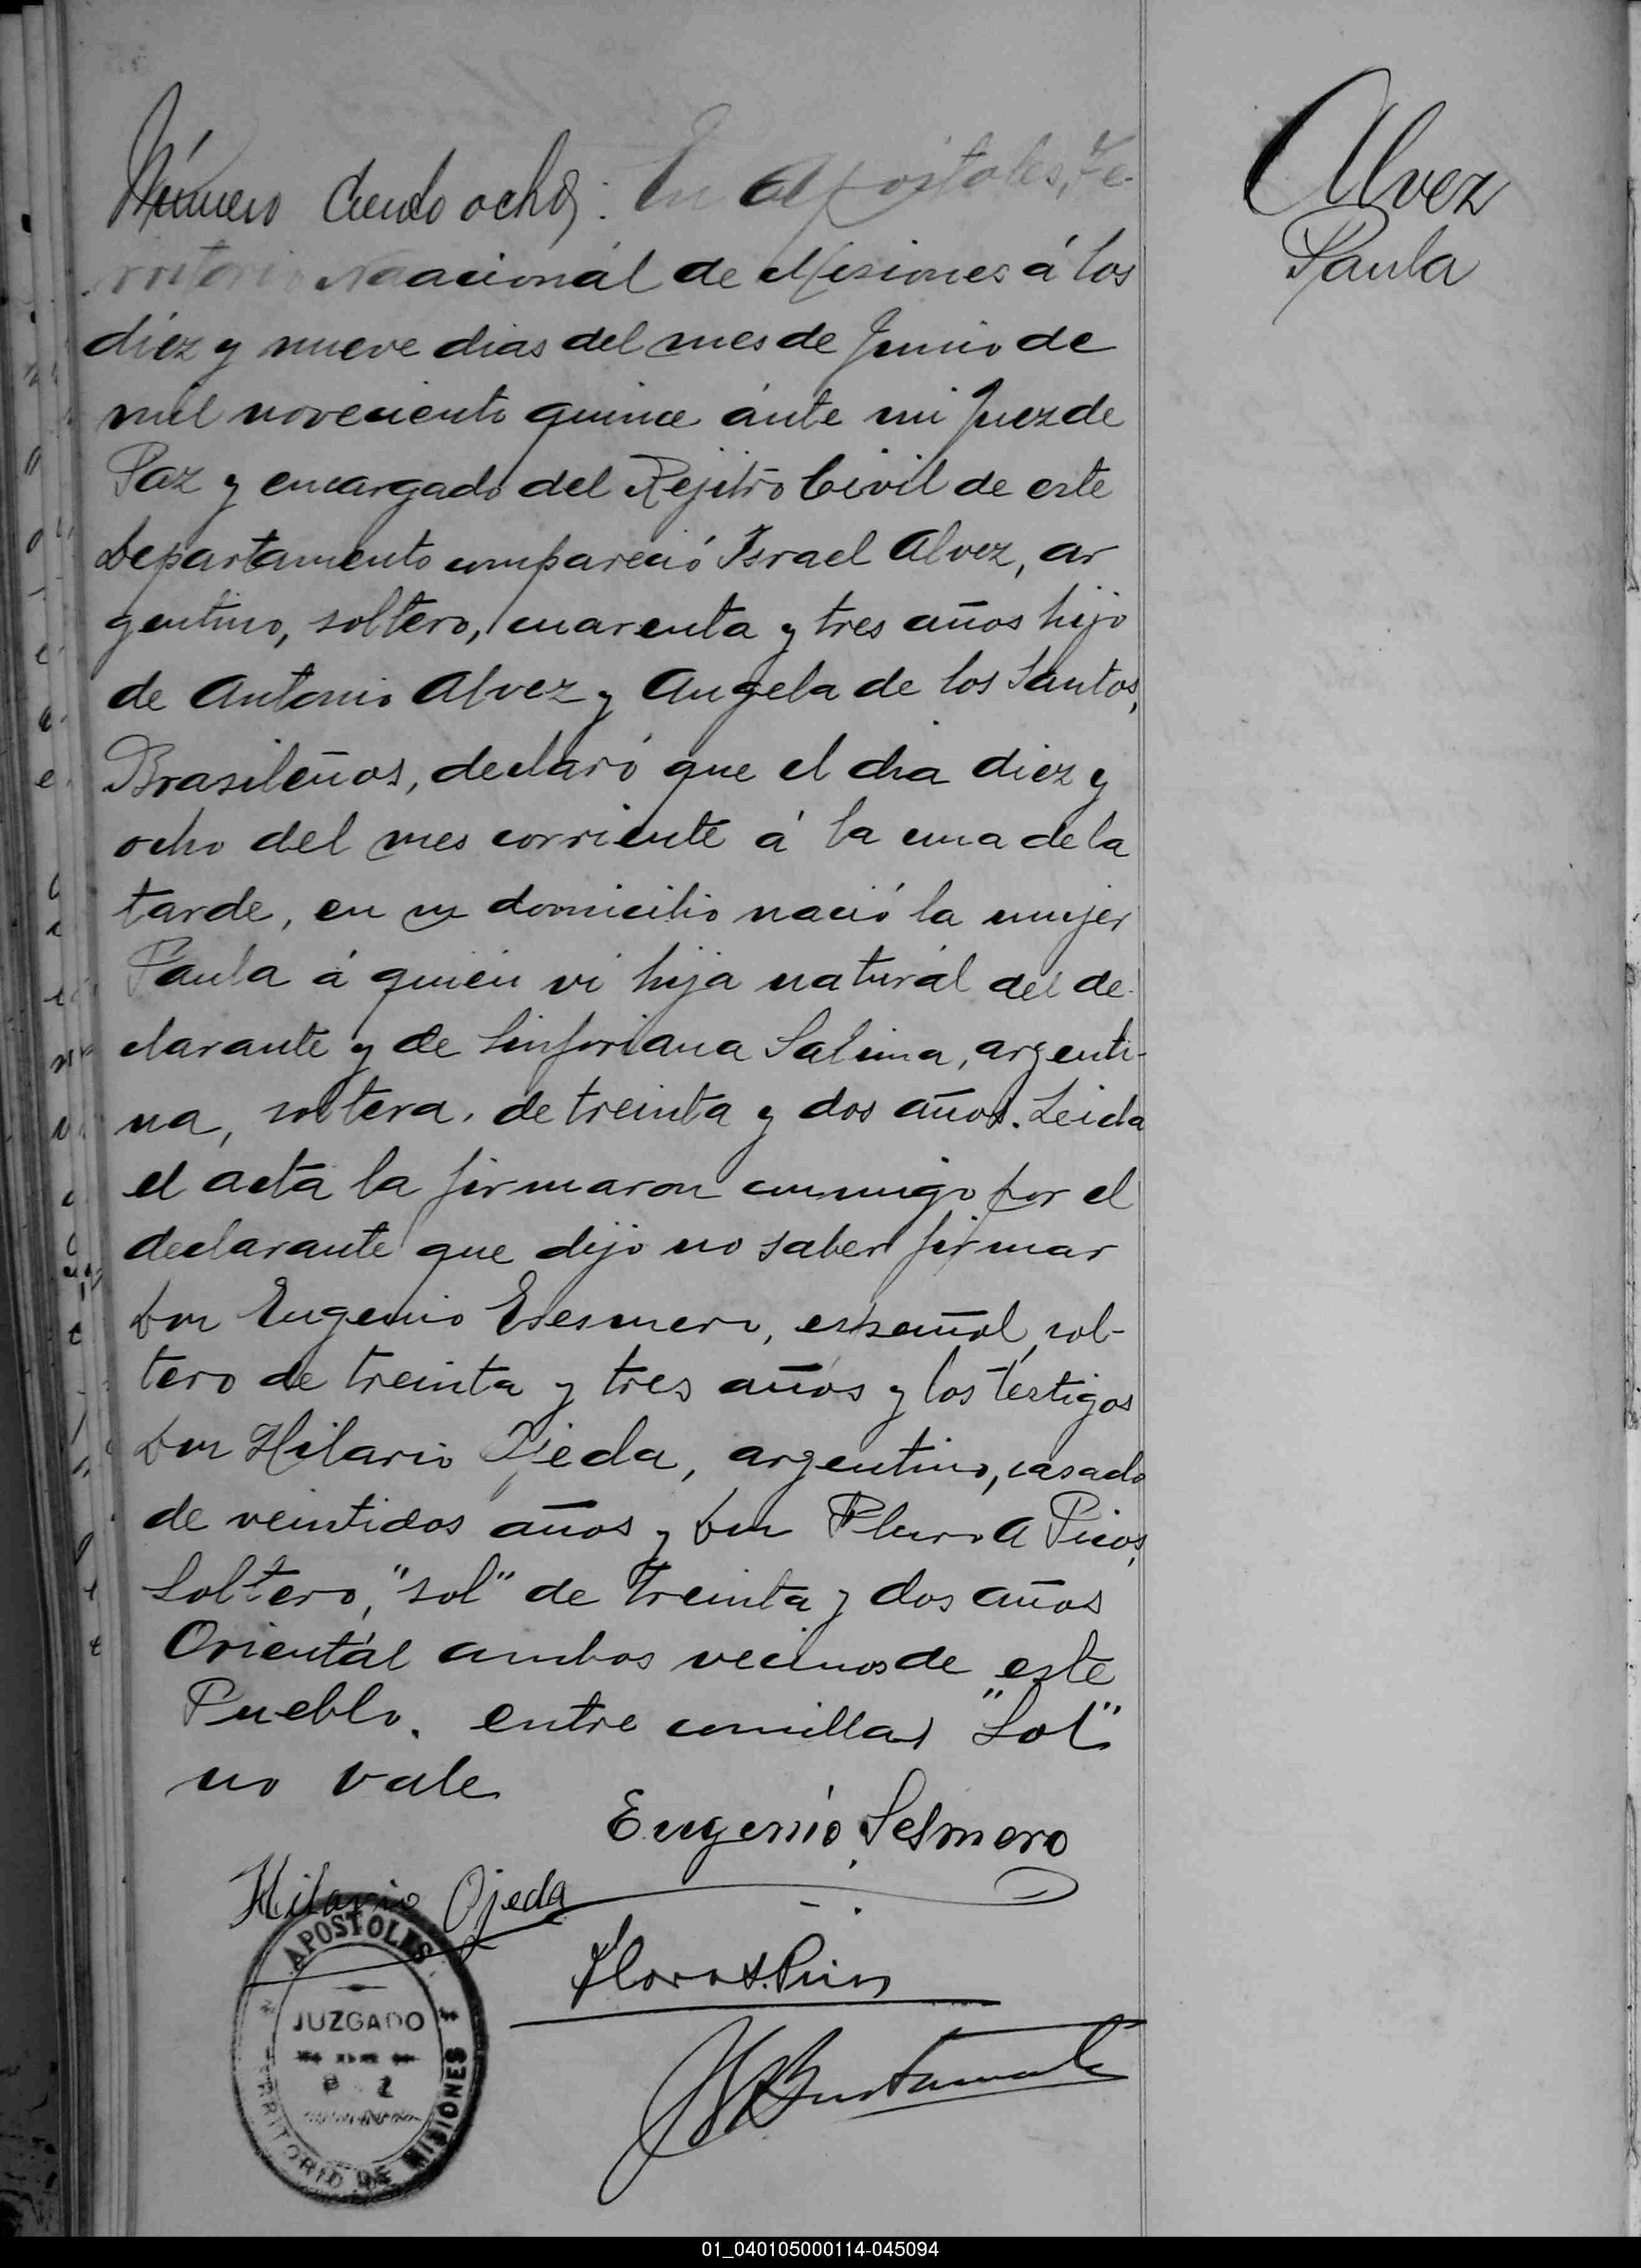 Número Ciento ocho: En Apostoles, Te-
rritorio Naacionál de Misiones á los
diéz y nueve dias del mes de Junio de
mil noveciento quince ánte mi Juez de
Paz y encargado del Rejitro Civil de este
Departamento compareció Israel Alvez, ar
gentino, soltero, cuarenta y tres años hijo
de Antonio Alvez y Angela de los Santos,
Brasileños, declaró que el dia diez y
ocho del mes corriente á la una de la
tarde, en su domicilio nació la mujer
Paula á quién vi hija naturál del de-
clarante y de Sinforiana Salina, argenti-
na, soltera, de treinta y dos años. Leida
el acta la firmaron conmigo por el
declarante que dijo no saber firmar
Don Eugenio Sesmero, español, sol-
tero de treinta y tres años y los téstigos
Don Hilario Ojeda, argentino, casado
de veintidos años y Don Floro A Pico,
Soltero, "sol" de treinta y dos años
Orientál ambos vecinos de este
Pueblo. entre comillas "Sol"
no vale
Eugenio Sesmero
Hilario Ojeda
APOSTOLES
JUZGADO
TERRITORIO DE MISIONES
Alvez
Paula
01_040105000114-045094